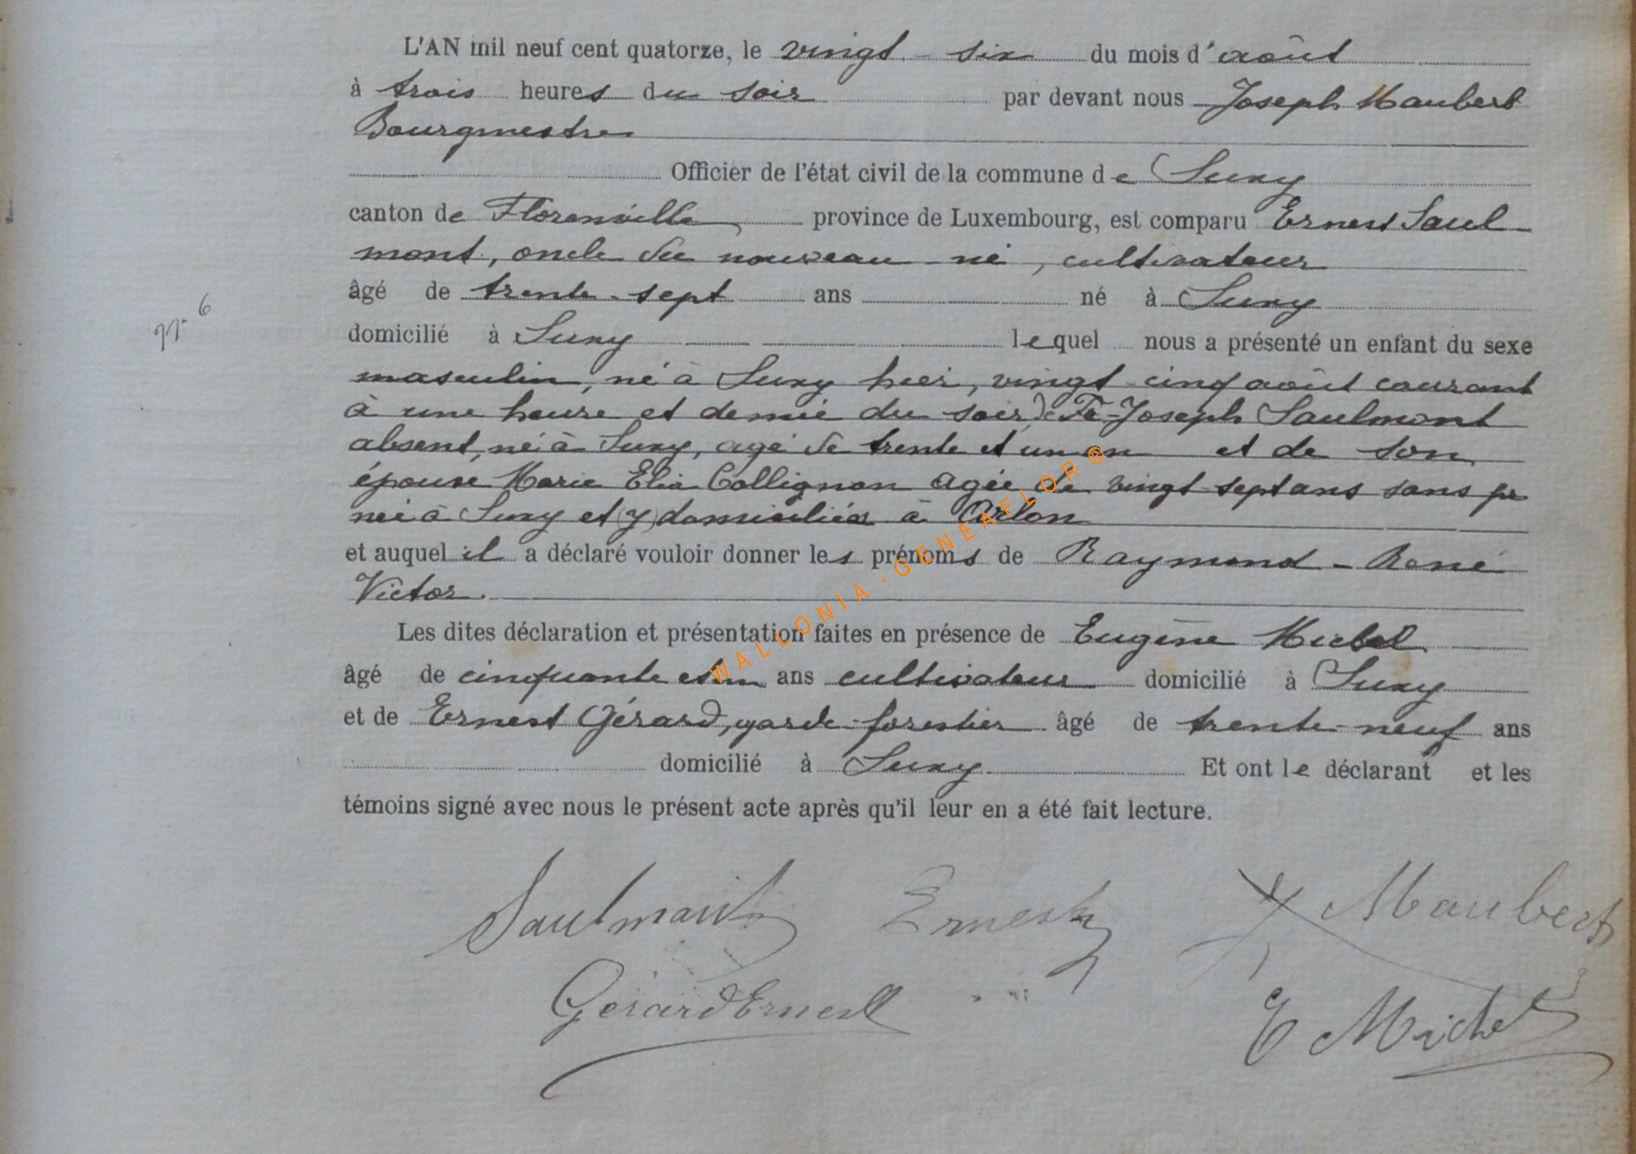 L'AN mil neuf cent quatorze, le vingt-six du mois d'août
à trois heures du soir par devant nous Joseph Maubert
Bourgmestre
Officier de l'état civil de la commune de Suxy
canton de Florenville, province de Luxembourg, est comparu Ernest Saul-
mont, oncle du nouveau-né, cultivateur
âgé de trente-sept ans né à Suxy
nº 6
domicilié à Suxy lequel nous a présenté un enfant du sexe
masculin, né à Suxy hier, vingt-cinq août courant
à une heure et demie du soir, de Fx-Joseph Saulmont
absent, né à Suxy, agé de trente et un an et de son
épouse Marie Elia Collignon agée de vingt sept ans sans
née à Suxy et (y) domiciliés à Arlon
et auquel il a déclaré vouloir donner les prénoms de Raymond-René
Victor.
Les dites déclaration et présentation faites en présence de Eugène Michel
âgé de cinquante et un ans cultivateur domicilié à Suxy
et de Ernest Gérard, garde-forestier âgé de trente-neuf ans
domicilié à Suxy. Et ont le déclarant et les
témoins signé avec nous le présent acte après qu'il leur en a été fait lecture.
Saulmont Ernest J Maubert
Gérard Ernest E Michel
WALLONIA-GENEAFLOR®